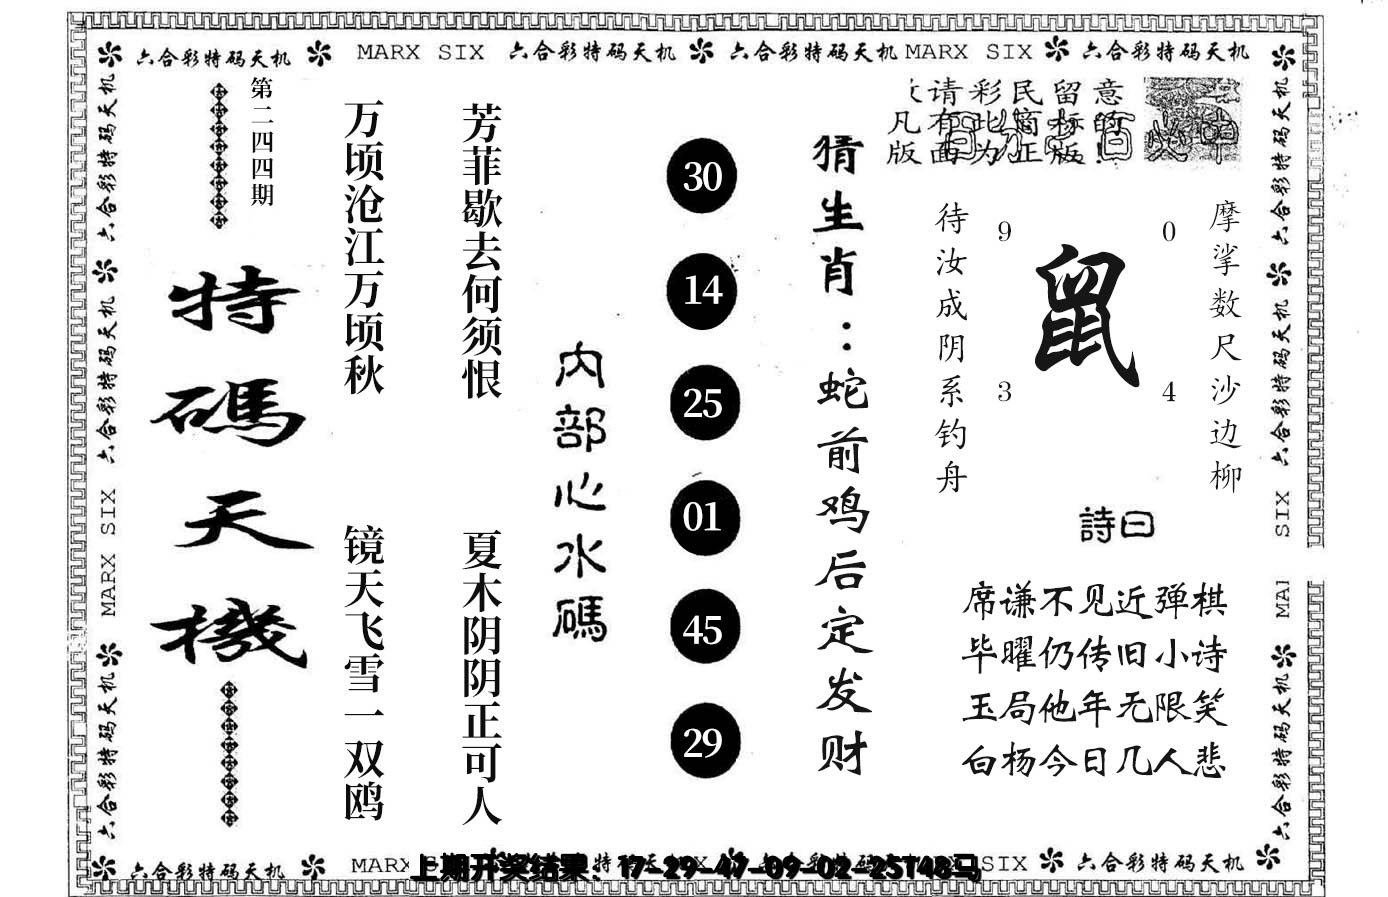 六合彩特码天机 MARX SIX 六合彩特码天机 六合彩特码天机 MARX SIX 六合彩特码天机
六合彩特码天机 MARX SIX 六合彩特码天机 六合彩特码天机
第二四四期
特碼天機
万顷沧江万顷秋
镜天飞雪一双鸥
芳菲歇去何须恨
夏木阴阴正可人
内部心水碼
30
14
25
01
45
29
猜生肖：蛇前鸡后定发财
请彩民留意
凡有此 的
版面为正版!
待汝成阴系钓舟
9
0
鼠
3
4
摩挲数尺沙边柳
詩曰
席谦不见近弹棋
毕曜仍传旧小诗
玉局他年无限笑
白杨今日几人悲
六合彩特码天机 六合彩特码天机 SIX MAR 六合彩特码天机
六合彩特码天机 MARX
上期开奖结果：17-29-47-09-02-25T48马
SIX 六合彩特码天机